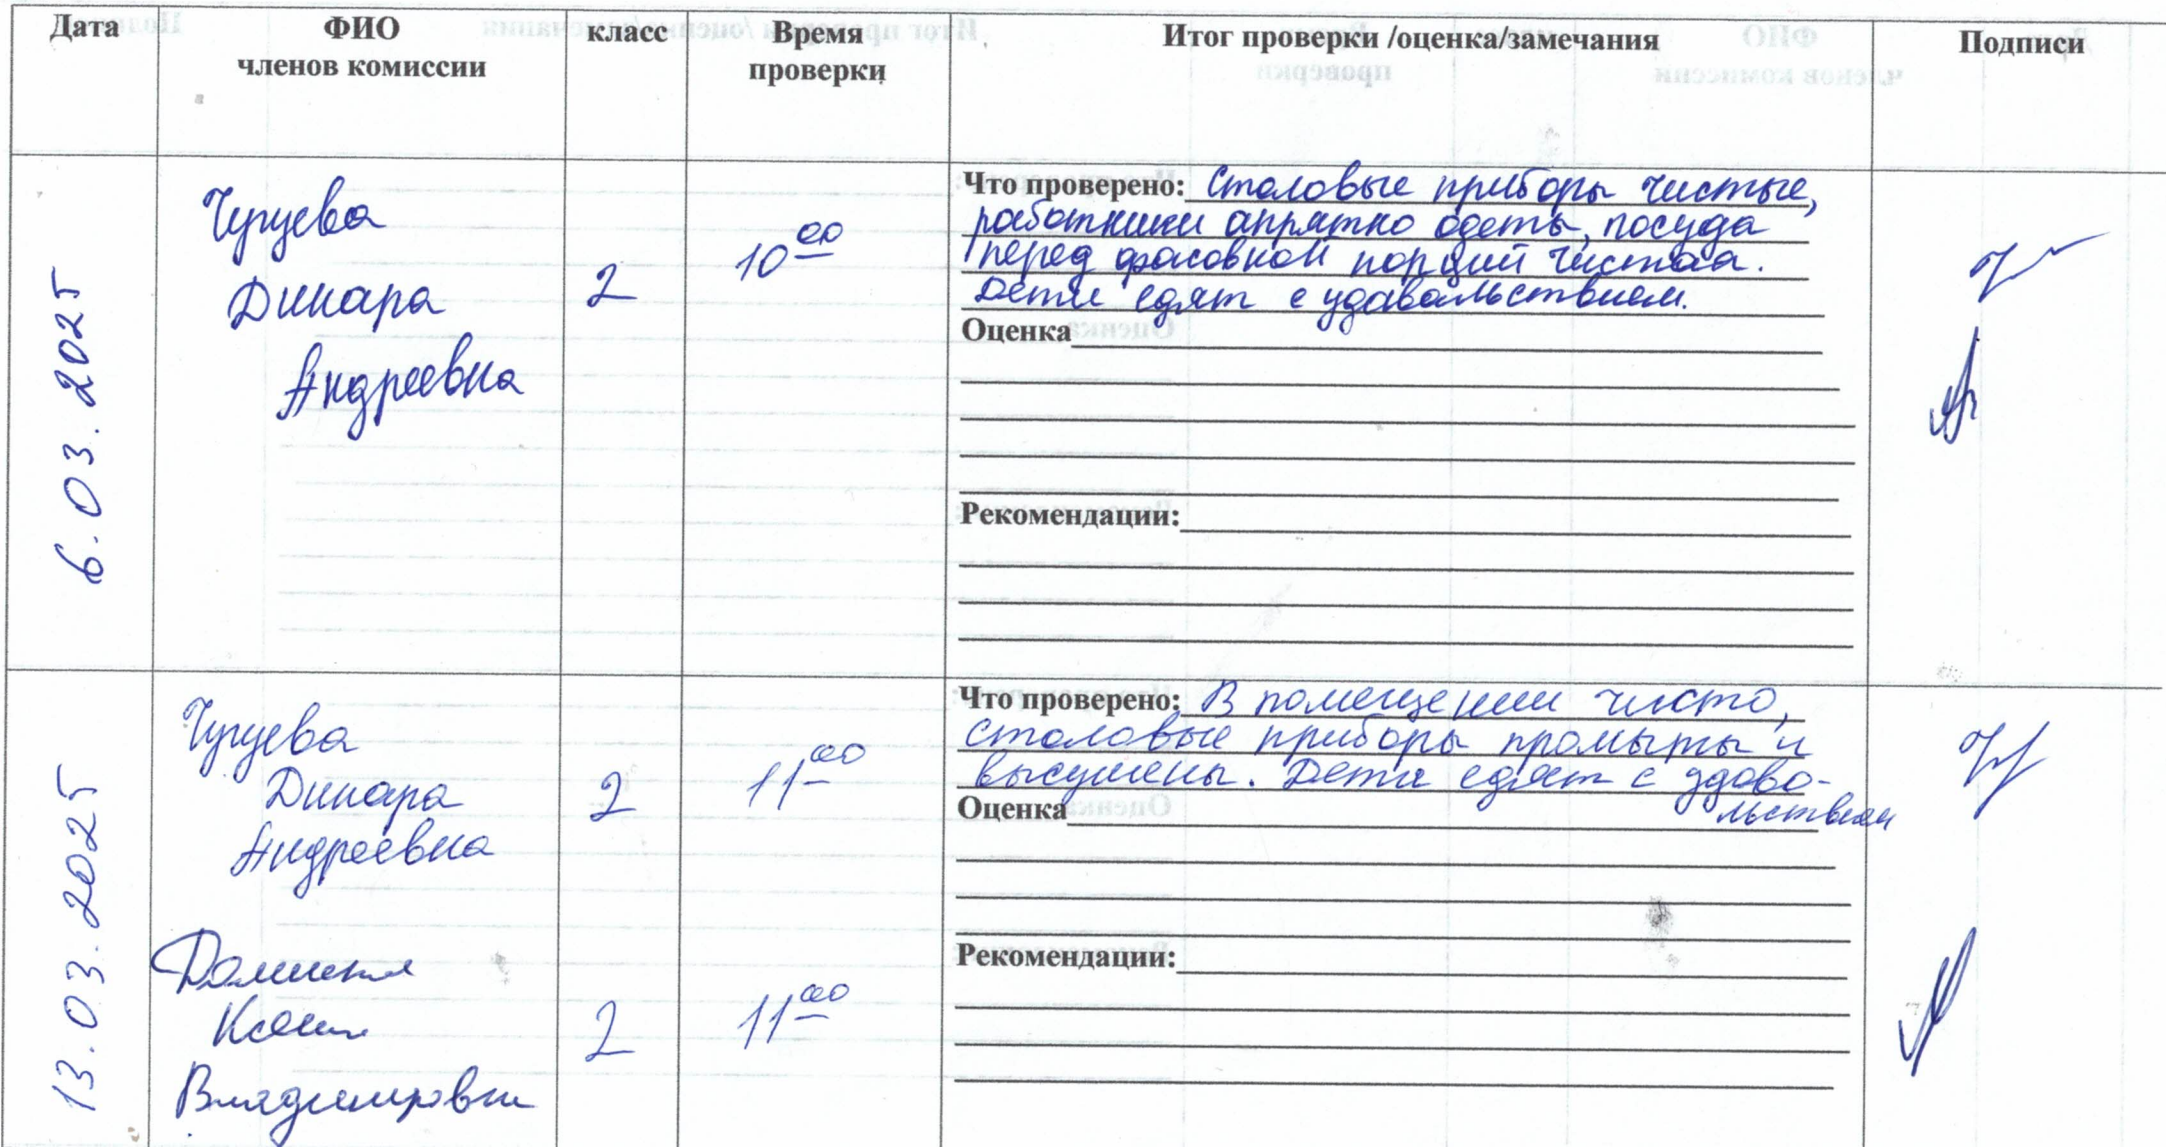 Дата ФИО членов комиссии класс Время проверки Итог проверки /оценка/замечания Подписи
6.03.2025
Чугуева
Динара
Андреевна
2
10 00
Что проверено: Столовые приборы чистые,
работники апрятно одеты, посуда
перед фасовкой порций чистая.
Дети едят с удавольствием.
Оценка
Рекомендации:
13.03.2025
Чугуева
Динара
Андреевна
2
11 00
Ксения
Владимировна
2
11 00
Что проверено: В помещении чисто,
столовые приборы промыты и
высушены. Дети едят с удово-
льствием
Оценка
Рекомендации: